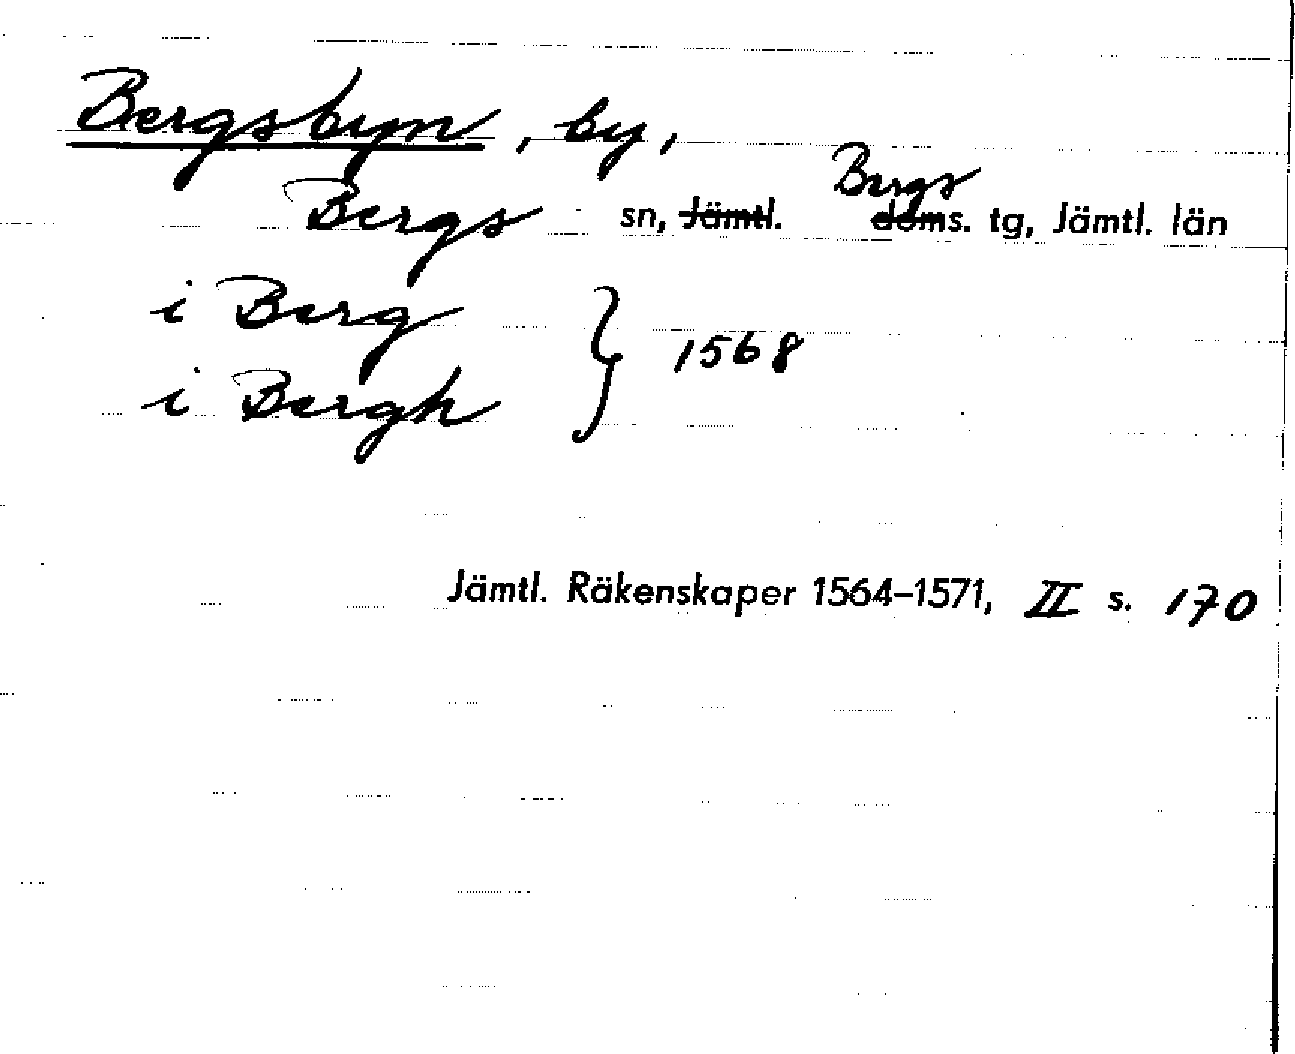 Bergsbyn, by,
Bergs sn, Jämtl. Bergs doms. tg, Jämtl. län
i Berg
i Bergh } 1568
Jämtl. Räkenskaper 1564–1571, II s. 170